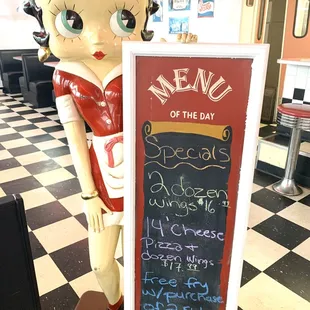 MENU
OF THE DAY
Specials
2 dozen
wings $16
14" cheese
Pizza +
dozen wings
$17.
free fry
w/purchase
of a